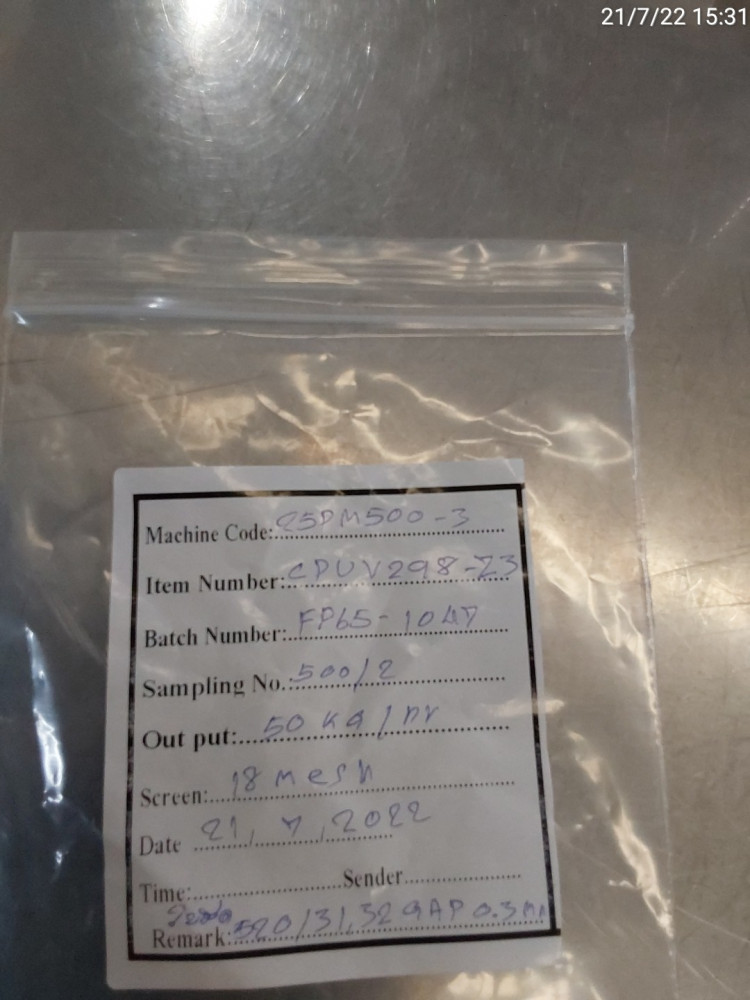 21/7/22 15:31
Machine Code: 25PM500-3
Item Number: CPUV298-Z3
Batch Number: FP65-1047
Sampling No.: 500/2
Out put: 50 Kg/hr
Screen: 18 mesh
Date 21, 7, 2022
Time: Sender
Remark: 520/31,32 GAP 0.3